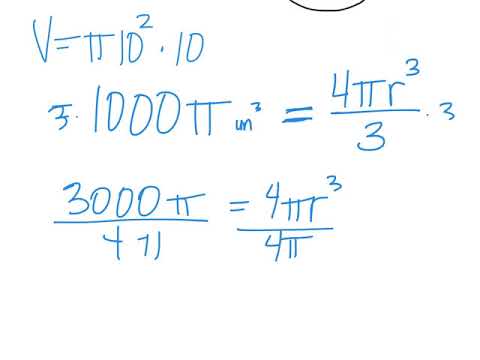 V = π10² · 10
3 · 1000π un³ = 4πr³/3 · 3
3000π/4π = 4πr³/4π